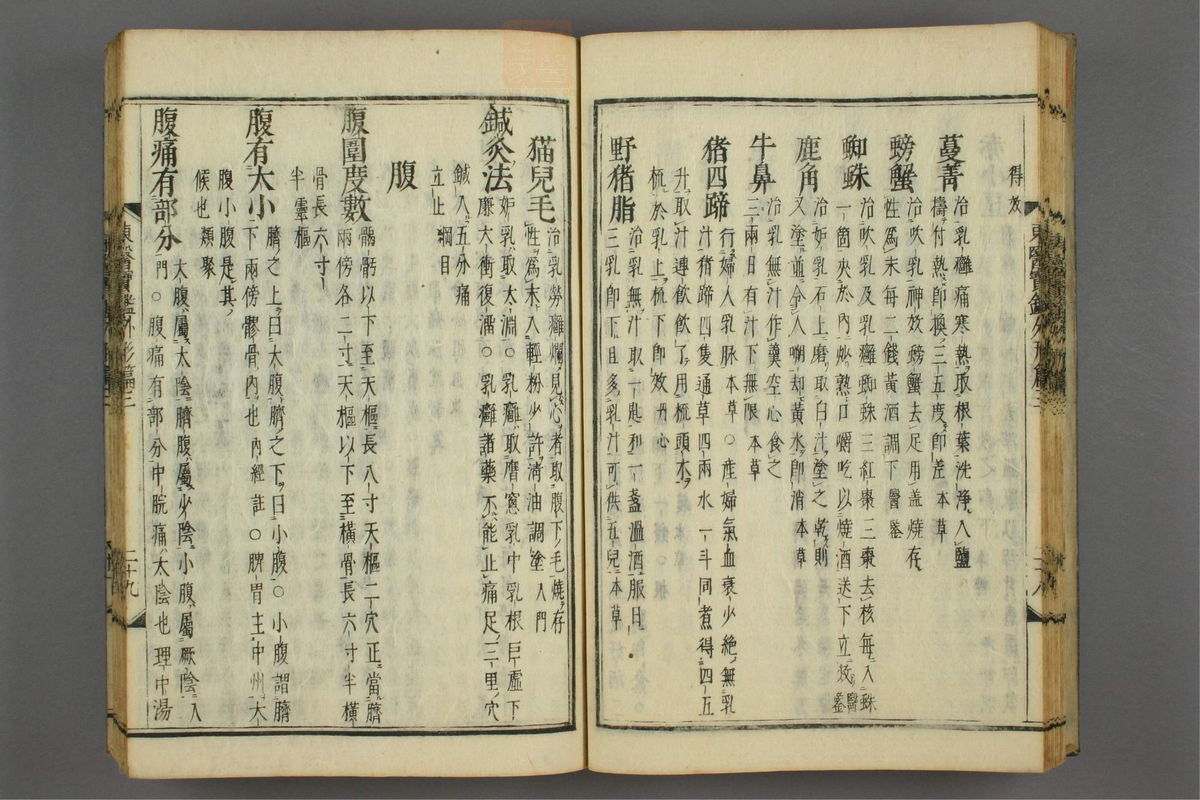 得效
蔓菁
治乳癰痛寒熱取根葉洗淨入鹽
擣付熱卽換三五度卽差本草
螃蟹
治吹乳神效螃蟹去足用盖燒存
性爲末每二錢黃酒調下醫鑒
蜘蛛
治吹乳及乳癰蜘蛛三紅棗三棗去核每入蛛
一箇夾於內炒熟口嚼吃以燒酒送下立效醫鑒
鹿角
治妬乳石上磨取白汁塗之乾則
又塗並令人嗍却黃水卽消本草
牛鼻
治乳無汁作羹空心食之
三兩日有汁下無限本草
猪四蹄
行婦人乳脉本草○産婦氣血衰少絶無乳
汁猪蹄四隻通草四兩水一斗同煮得四五
升取汁連飮飮了用梳頭木
梳於乳上梳下卽效丹心
野猪脂
治乳無汁取一匙和一盞溫酒服日
三乳卽下且多乳汁可供五兒本草
猫兒毛
治乳勞癰爛見心者取腹下毛燒存
性爲末入輕粉少許淸油調塗入門
鍼灸法
妬乳取太淵○乳癰取膺窓乳中乳根巨虛下
廉大衝復溜○乳癰諸藥不能止痛足三里穴
鍼入五分痛
立止綱目
腹
腹圍度數
䯏骬以下至天樞長八寸天樞二穴正當臍
兩傍各二寸天樞以下至橫骨長六寸半橫
骨長六寸
半靈樞
腹有大小
臍之上曰大腹臍之下曰小腹○小腹謂臍
下兩傍髎骨內也內經註○脾胃主中州大
腹小腹是其
候也類聚
腹痛有部分
大腹屬太陰臍腹屬少陰小腹屬厥陰入
門○腹痛有部分中脘痛太陰也理中湯
東醫寶鑑外形篇三
二十九